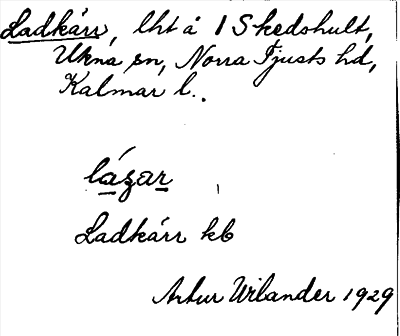 Ladkärr, lht å 1 Skedshult,
Ukna sn, Norra Tjusts hd,
Kalmar l.
lázar
Ladkärr kb
Artur Wilander 1929